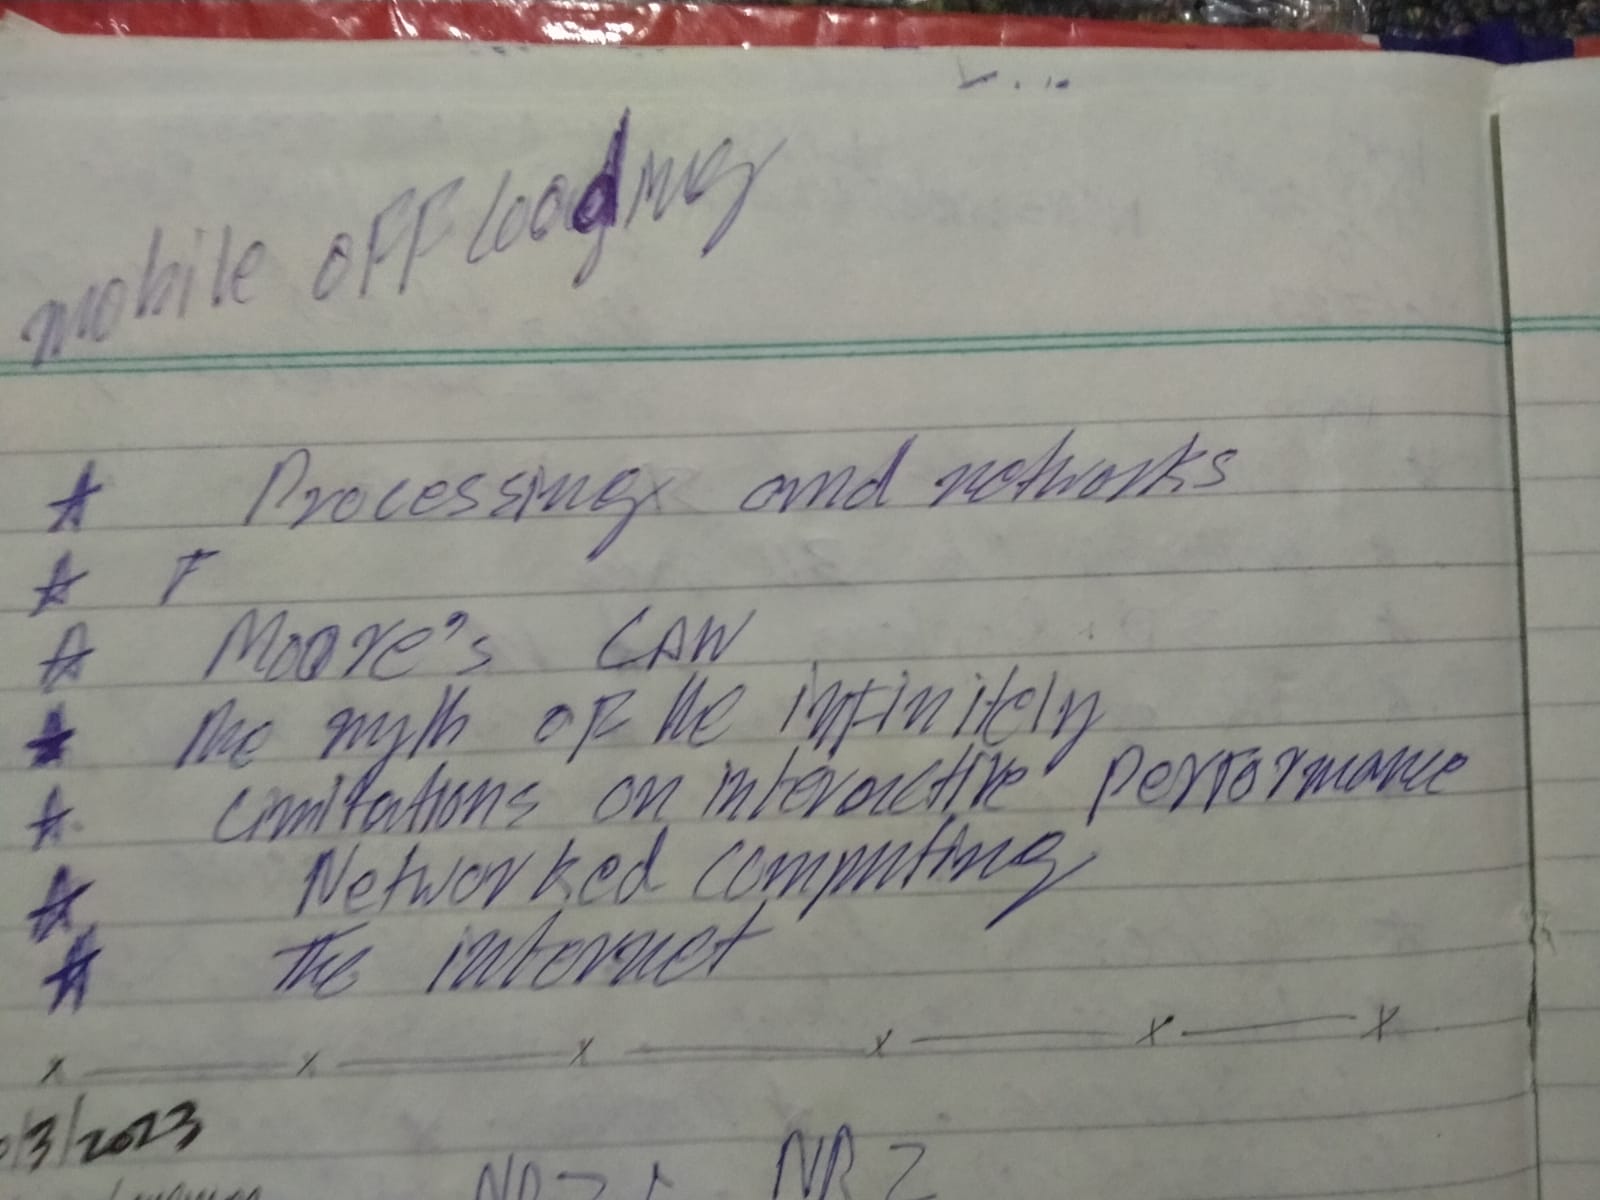 mobile offloading
★ Processing and networks
★ F
★ Moore's LAW
★ The myth of the infinitely
★ Limitations on interactive performance
★ Networked computing
★ The internet
x x x x x x
/3/2023
NRZ